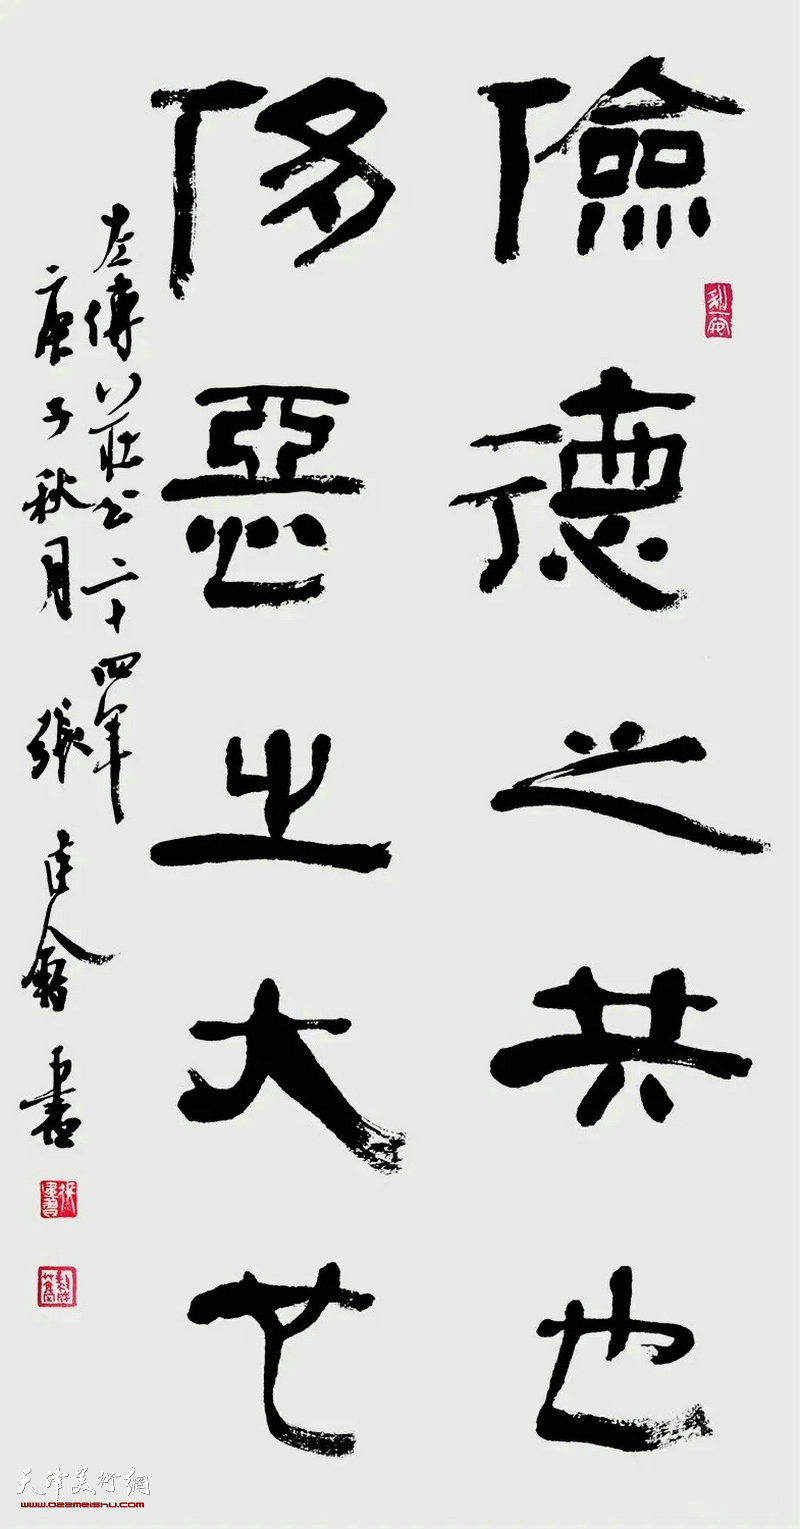 儉德之共也
侈惡之大也
左傳 莊公二十四年
庚子秋月 張建會書
天津美術網
www.022meishu.com